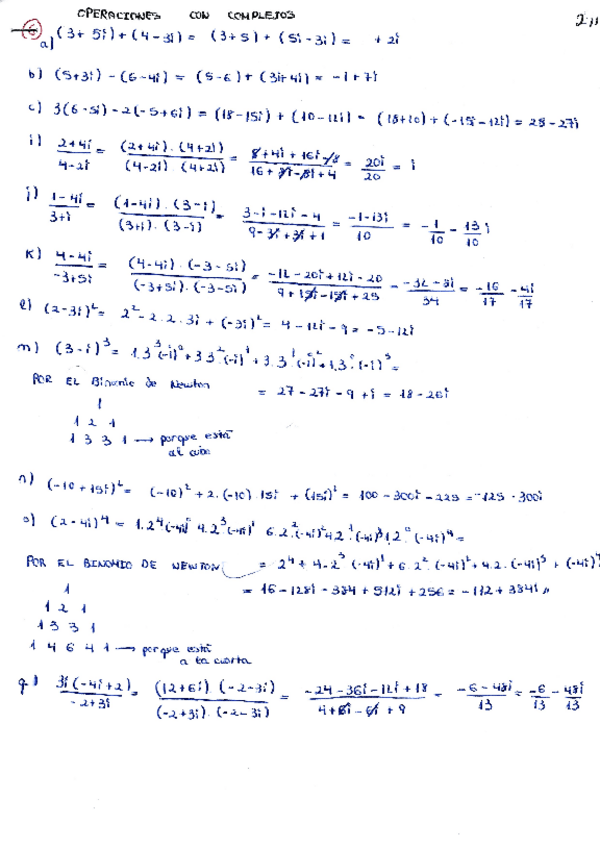 OPERACIONES CON COMPLEJOS
6
a) (3+5i)+(4-3i) = (3+5)+(5i-3i) = +2i
b) (5+3i)-(6-4i) = (5-6)+(3i+4i) = -1+7i
c) 3(6-5i)-2(-5+6i) = (18-15i)+(10-12i) = (18+10)+(-15i-12i) = 28-27i
i) 2+4i/4-2i = (2+4i)·(4+2i)/(4-2i)·(4+2i) = 8+4i+16i-8/16+8i-8i+4 = 20i/20 = i
j) 1-4i/3+i = (1-4i)·(3-i)/(3+i)·(3-i) = 3-i-12i-4/9-3i+3i+1 = -1-13i/10 = -1/10 - 13/10 i
k) 4-4i/-3+5i = (4-4i)·(-3-5i)/(-3+5i)·(-3-5i) = -12-20i+12i-20/9+15i-15i+25 = -32-8i/34 = -16/17 - 4i/17
l) (2-3i)² = 2²-2·2·3i+(-3i)² = 4-12i-9 = -5-12i
m) (3-i)³ = 1·3³·(-i)⁰+3·3²·(-i)¹+3·3¹·(-i)²+1·3⁰·(-i)³ =
POR EL Binomio de Newton = 27-27i-9+i = 18-26i
1
1 2 1
1 3 3 1 → porque está
al cubo
n) (-10+15i)² = (-10)²+2·(-10)·15i+(15i)² = 100-300i-225 = -125-300i
o) (2-4i)⁴ = 1·2⁴(-4i)⁰ 4·2³·(-4i)¹ 6·2²·(-4i)² 4·2¹·(-4i)³ 1·2⁰·(-4i)⁴ =
POR EL BINOMIO DE NEWTON = 2⁴+4·2³·(-4i)¹+6·2²·(-4i)²+4·2·(-4i)³+(-4i)⁴
1 = 16-128i-384+512i+256 = -112+384i
1 2 1
1 3 3 1
1 4 6 4 1 → porque está
a la cuarta
q) 3i(-4i+2)/-2+3i = (12+6i)·(-2-3i)/(-2+3i)·(-2-3i) = -24-36i-12i+18/4+6i-6i+9 = -6-48i/13 = -6/13 - 48i/13